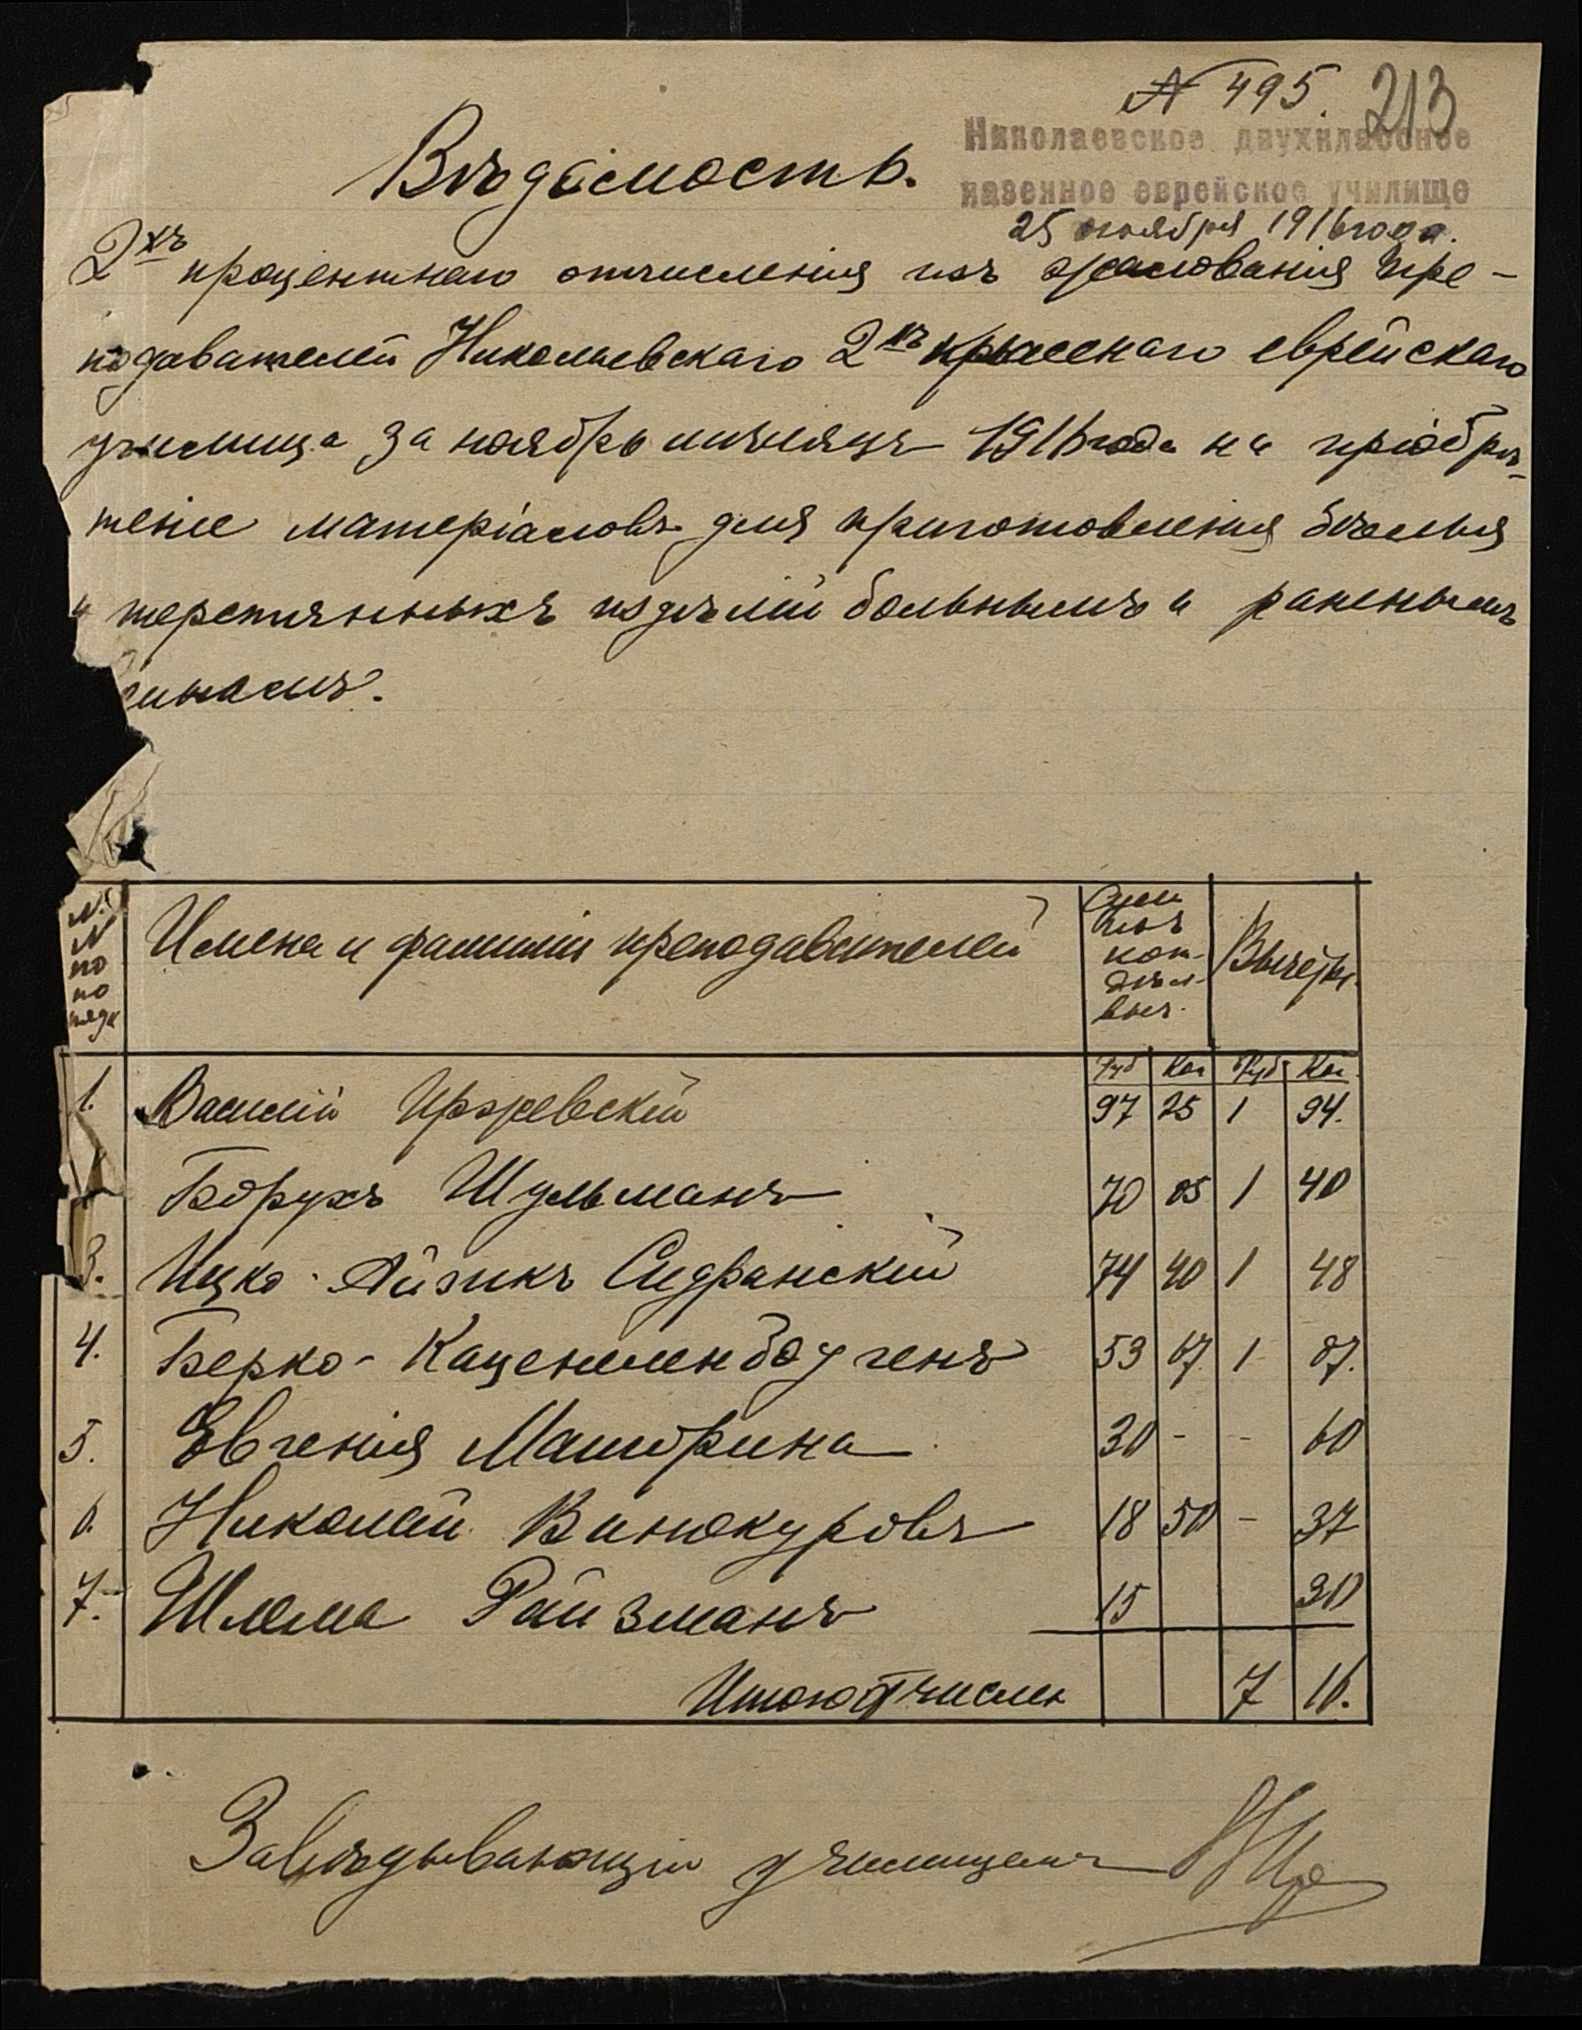 № 495. 213
Николаевское двухклассное
казенное еврейское училище
25 ноября 1916 года.
Вѣдомость.
2хъ процентнаго отчисленія изъ жалованія пре-
подавателей Николаевскаго 2хъ класснаго еврейскаго
училища за ноябрь мѣсяцъ 1916 года на пріобрѣ-
теніе матеріаловъ для приготовленія бѣлья
и шерстянныхъ издѣлій больнымъ и раненымъ
инамъ.
№ № по по рядк
Имена и фамиліи преподавателей
изъ кот. дѣл. выч.
Вычеты.
Руб Коп Руб Коп.
1. Василій Иржевскій 97 25 1 94.
Борухъ Шульманъ 70 05 1 40
3. Ицко-Айзикъ Сидранскій 74 40 1 48
4. Берко-Каценеленбогенъ 53 67 1 07.
5. Евгенія Машорина 30 - - 60
6. Николай Винокуровъ 18 50 - 37
7. Шлема Райзманъ 15 30
Итого отчислен 7 16.
Завѣдывающій училищемъ